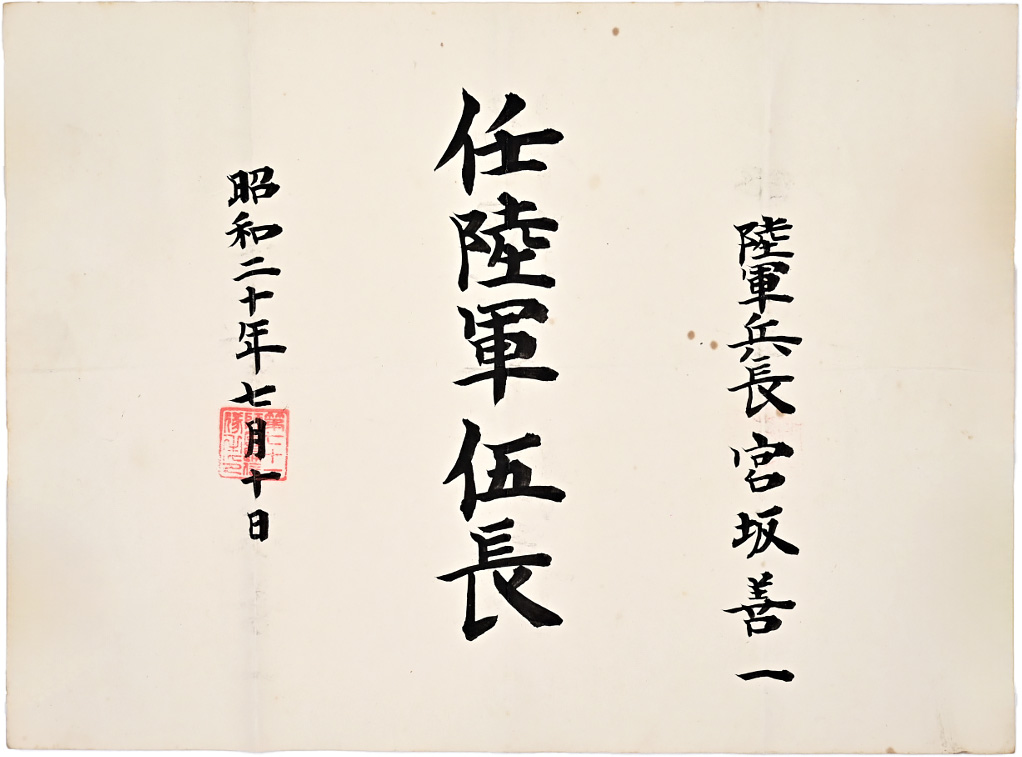 陸軍兵長 宮坂善一
任陸軍伍長
昭和二十年七月十日